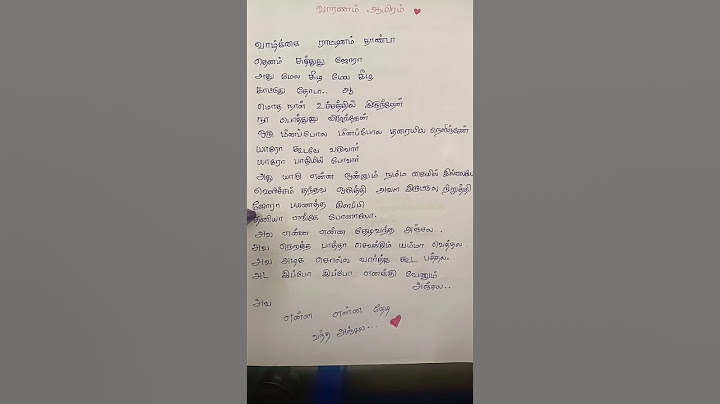 வாரணம் ஆயிரம்
வாழ்க்கை ராட்டினம் தாண்டா
தெனம் சுத்துது ஜோரா
அது மேல கீழ மேல கீழ
காட்டுது தோடா.. ஆ
மொத நான் உச்சத்தில் இருந்தேன்
நா பொத்துனு விழுந்தேன்
ஒரு மீனப்போல மீனப்போல தரையில நெளிந்தேன்
யாரோ கூடவே வருவார்
யாரோ பாதியில் போவார்
அது யாரு என்ன ஒன்னும் நம்ம கையில் இல்லையே
வெளிச்சம் தந்தவ ஒருத்தி அவள இருட்டுல நிறுத்தி
ஜோரா பயணத்த கிளப்பி
தனியா எங்கே போனாளோ.
அவ என்ன என்ன தேடிவந்த அஞ்சல..
அவ நெறத்த பாத்தா செவக்கும் யம்மா வெத்தல
அவ அழக சொல்ல வார்த்த கூட பத்தல.
அட இப்போ இப்போ எனக்கு வேணும்
அஞ்சல..
அவ
என்ன என்ன தேடி
வந்த அஞ்சல...